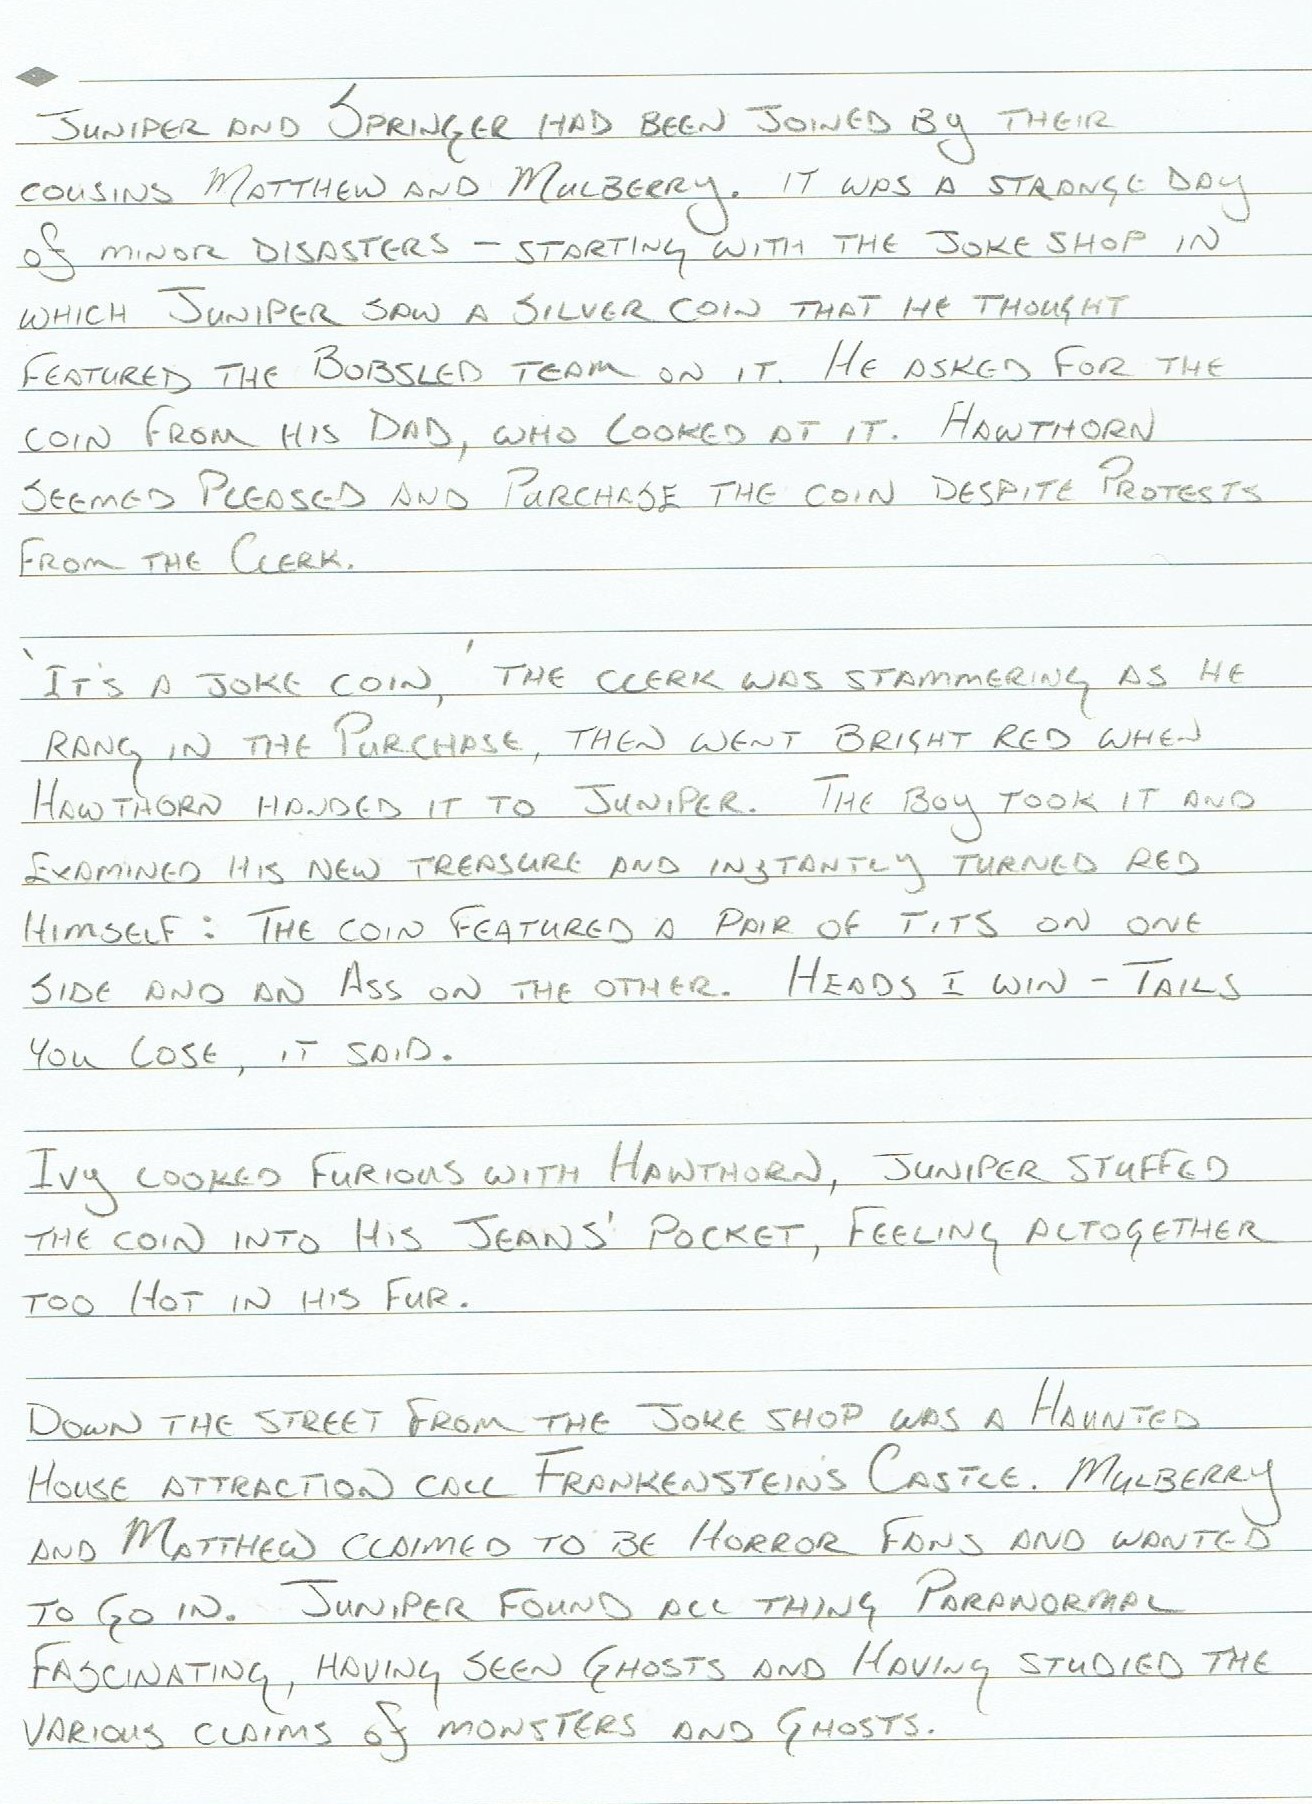 Juniper and Springer had been joined by their
cousins Matthew and Mulberry. It was a strange day
of minor disasters – starting with the joke shop in
which Juniper saw a silver coin that he thought
featured the Bobsled team on it. He asked for the
coin from his Dad, who looked at it. Hawthorn
seemed pleased and purchase the coin despite protests
from the clerk.
'It's a joke coin,' the clerk was stammering as he
rang in the purchase, then went bright red when
Hawthorn handed it to Juniper. The boy took it and
examined his new treasure and instantly turned red
himself: The coin featured a pair of tits on one
side and an ass on the other. Heads I win – Tails
you lose, it said.
Ivy looked furious with Hawthorn, Juniper stuffed
the coin into his jeans' pocket, feeling altogether
too hot in his fur.
Down the street from the joke shop was a Haunted
House attraction call Frankenstein's Castle. Mulberry
and Matthew claimed to be horror fans and wanted
to go in. Juniper found all thing paranormal
fascinating, having seen ghosts and having studied the
various claims of monsters and ghosts.